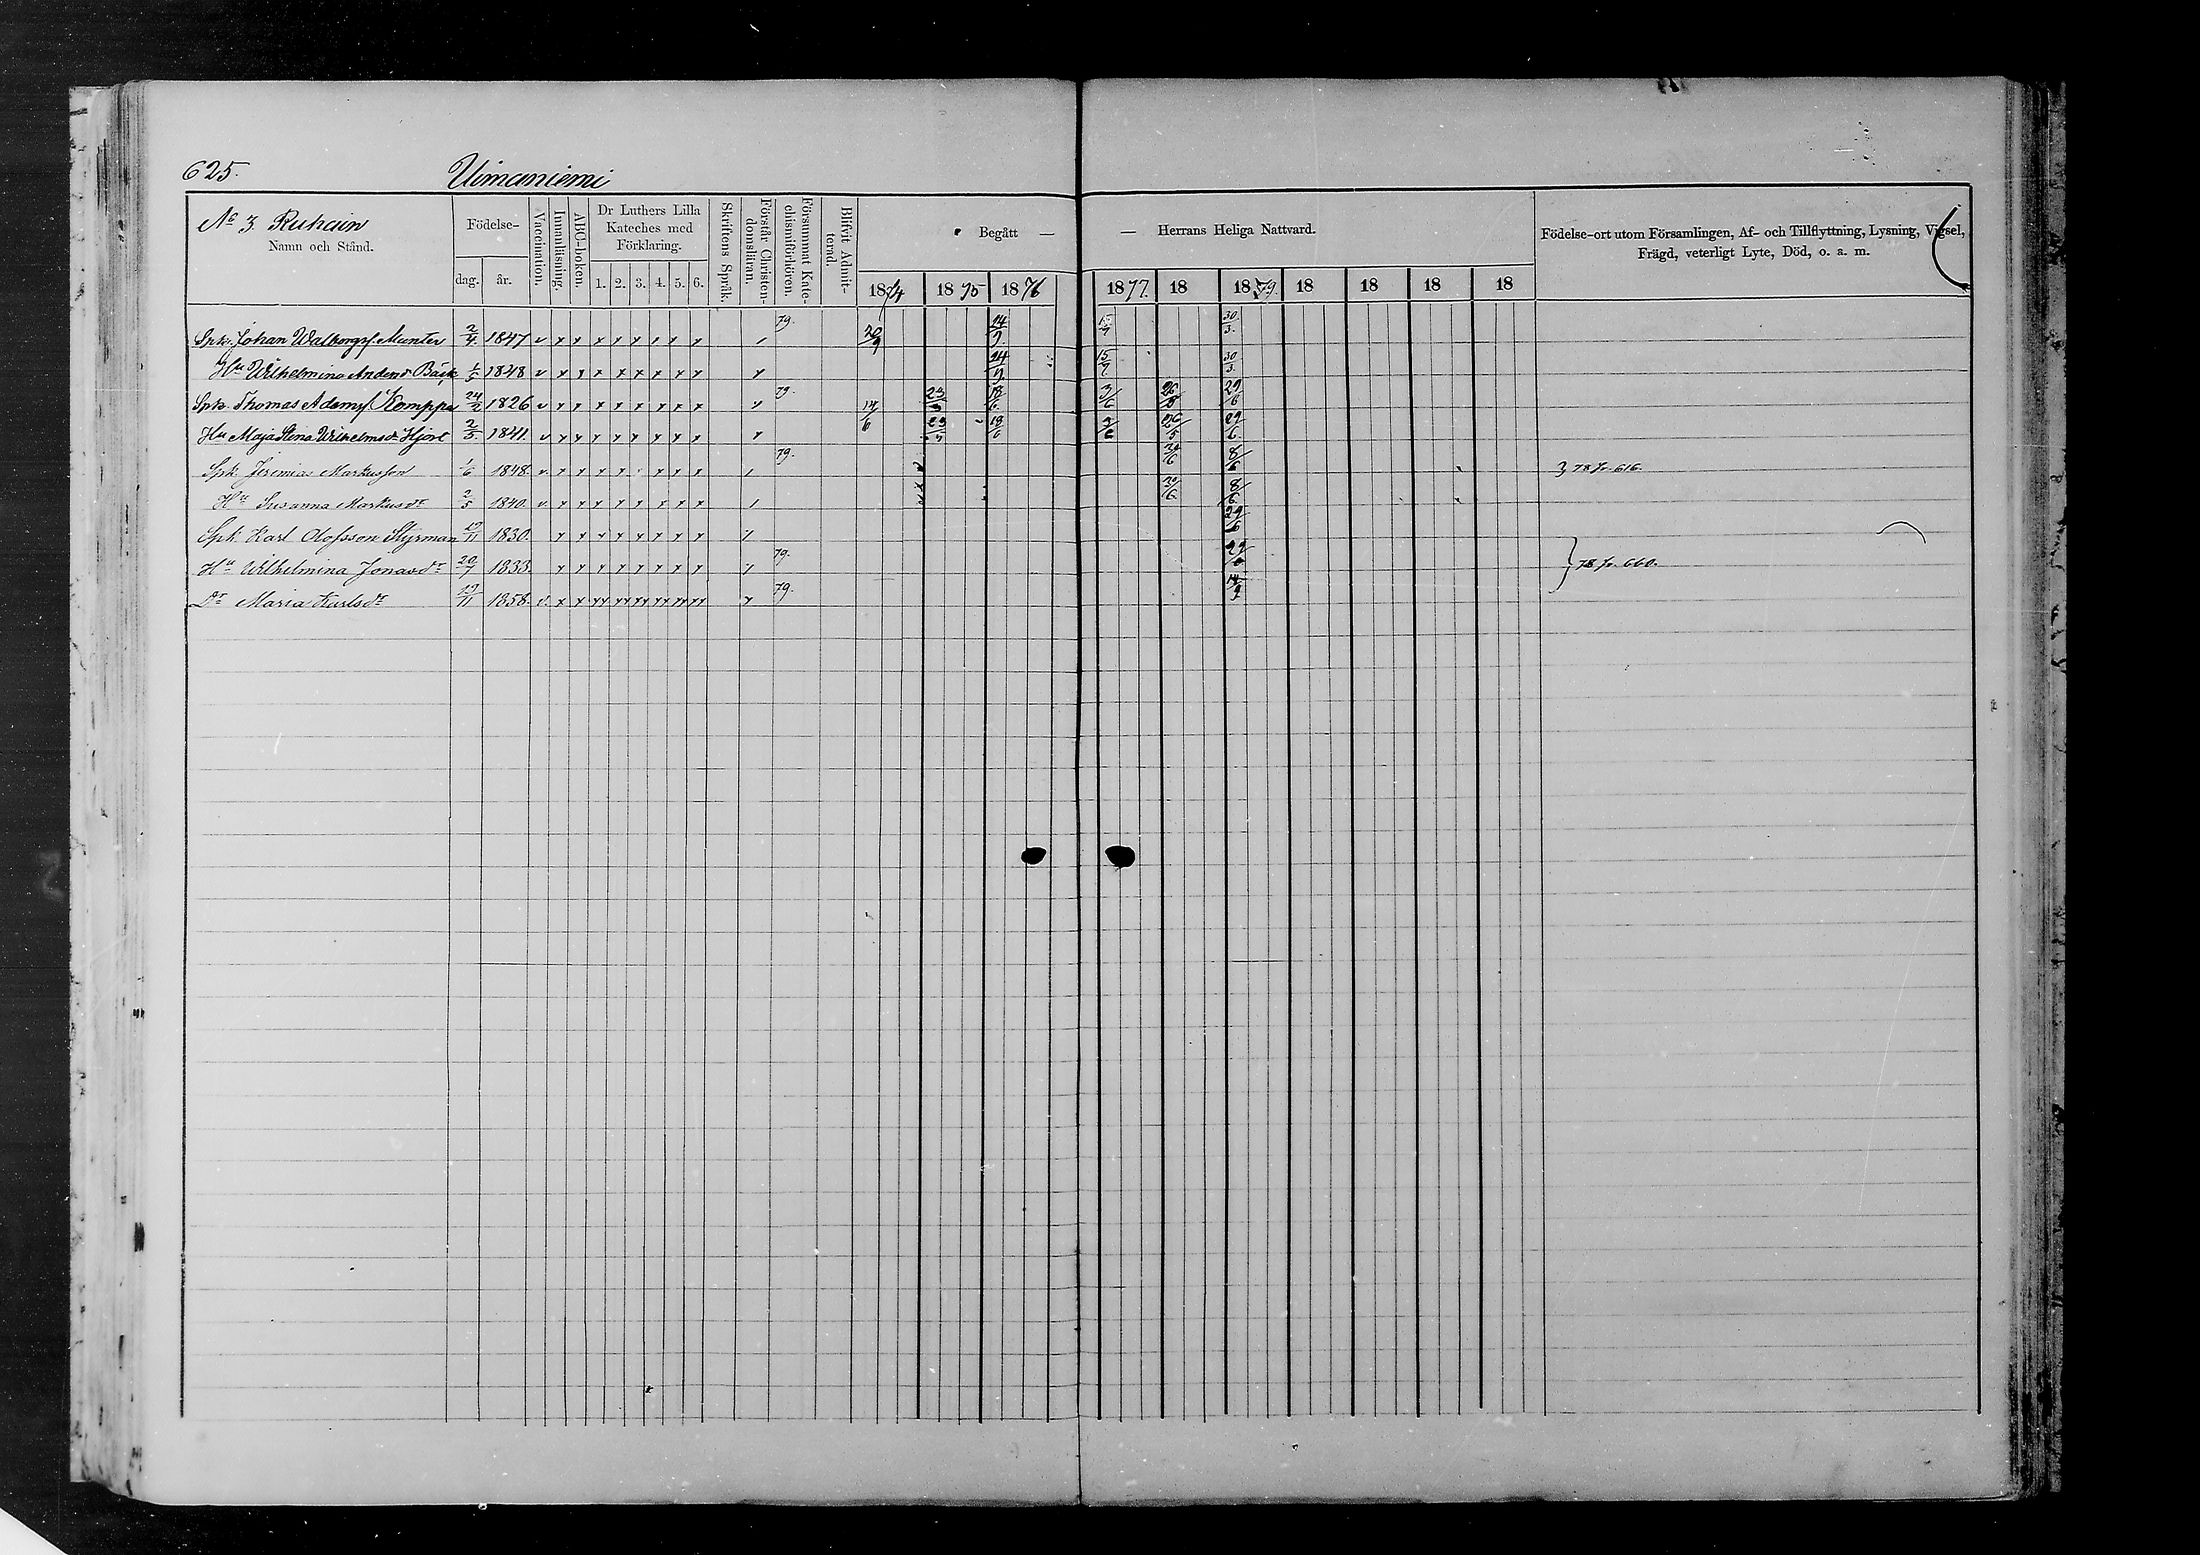 625. Uimaniemi
No 3 Ruhain
Namn och Stånd.
Födelse-
dag. år.
Vaccination.
Innanläsning.
ABC-boken.
Dr Luthers Lilla
Kateches med
Förklaring.
1. 2. 3. 4. 5. 6.
Skriftens Språk.
Förstår Christen-
domsläran.
Försummat Kate-
chismiförhören.
Blifvit Admit-
terad.
Begått —
1874 1875 1876
— Herrans Heliga Nattvard.
1877. 18 1879. 18 18 18 18
Födelse-ort utom Församlingen, Af- och Tillflyttning, Lysning, Vigsel,
Frägd, veterligt Lyte, Död, o. a. m.
Spk. Johan Walborgss. Munter 2/4 1847 v x x x x x x x x 79. 20/9 24/9 15/7 30/3.
Hu Wilhelmina Andersdr Bäck 1/5 1848 v x x x x x x x x x 24/9 15/7 30/3.
Spk. Thomas Adamss. Kemppe 24/2 1826 v x x x x x x x x x 79. 14/6 23/5 18/6. 3/6 26/5 29/6
Hu Maja Stena Wilhelmsdr Hjort 2/5. 1841. v x x x x x x x x x 23/5 18/6 3/6 26/5 29/6.
Spk. Jeremias Markusson 1/6 1848. v. x x x x x x x 79. 8/6 } 78 fr. 616.
Hu Susanna Markusdr 2/5 1840. v. x x x x x x x x 8/6.
Spk. Karl Olofsson Styrman 19/11 1830. x x x x x x x x x 29/6
Hu Wilhelmina Jonasdr 20/7 1833. x x x x x x x x x 79. 29/6 } 78 fr. 660.
Dr Maria Karlsdr 19/11 1858. v. x x xx xx xx xx xx xx x 79. 14/9